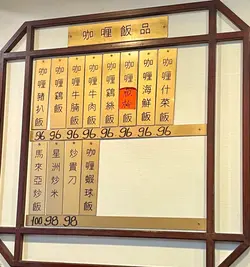 咖喱飯品
咖喱豬扒飯
咖喱雞飯
咖喱牛腩飯
咖喱牛肉飯
咖喱雞絲飯
咖喱飯
咖喱海鮮飯
咖喱什菜飯
96 96 96 96 96 96 96 96
馬來亞炒飯
星洲炒米
炒貴刁
咖喱蝦球飯
100 98 98